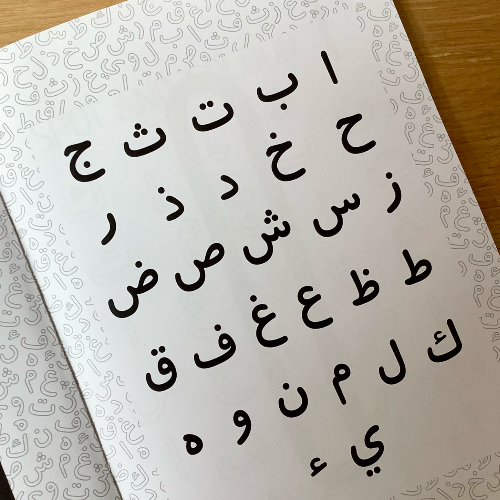 ا ب ت ث ج
ح خ د ذ ر
ز س ش ص ض
ط ظ ع غ ف ق
ك ل م ن و ه
ي ء